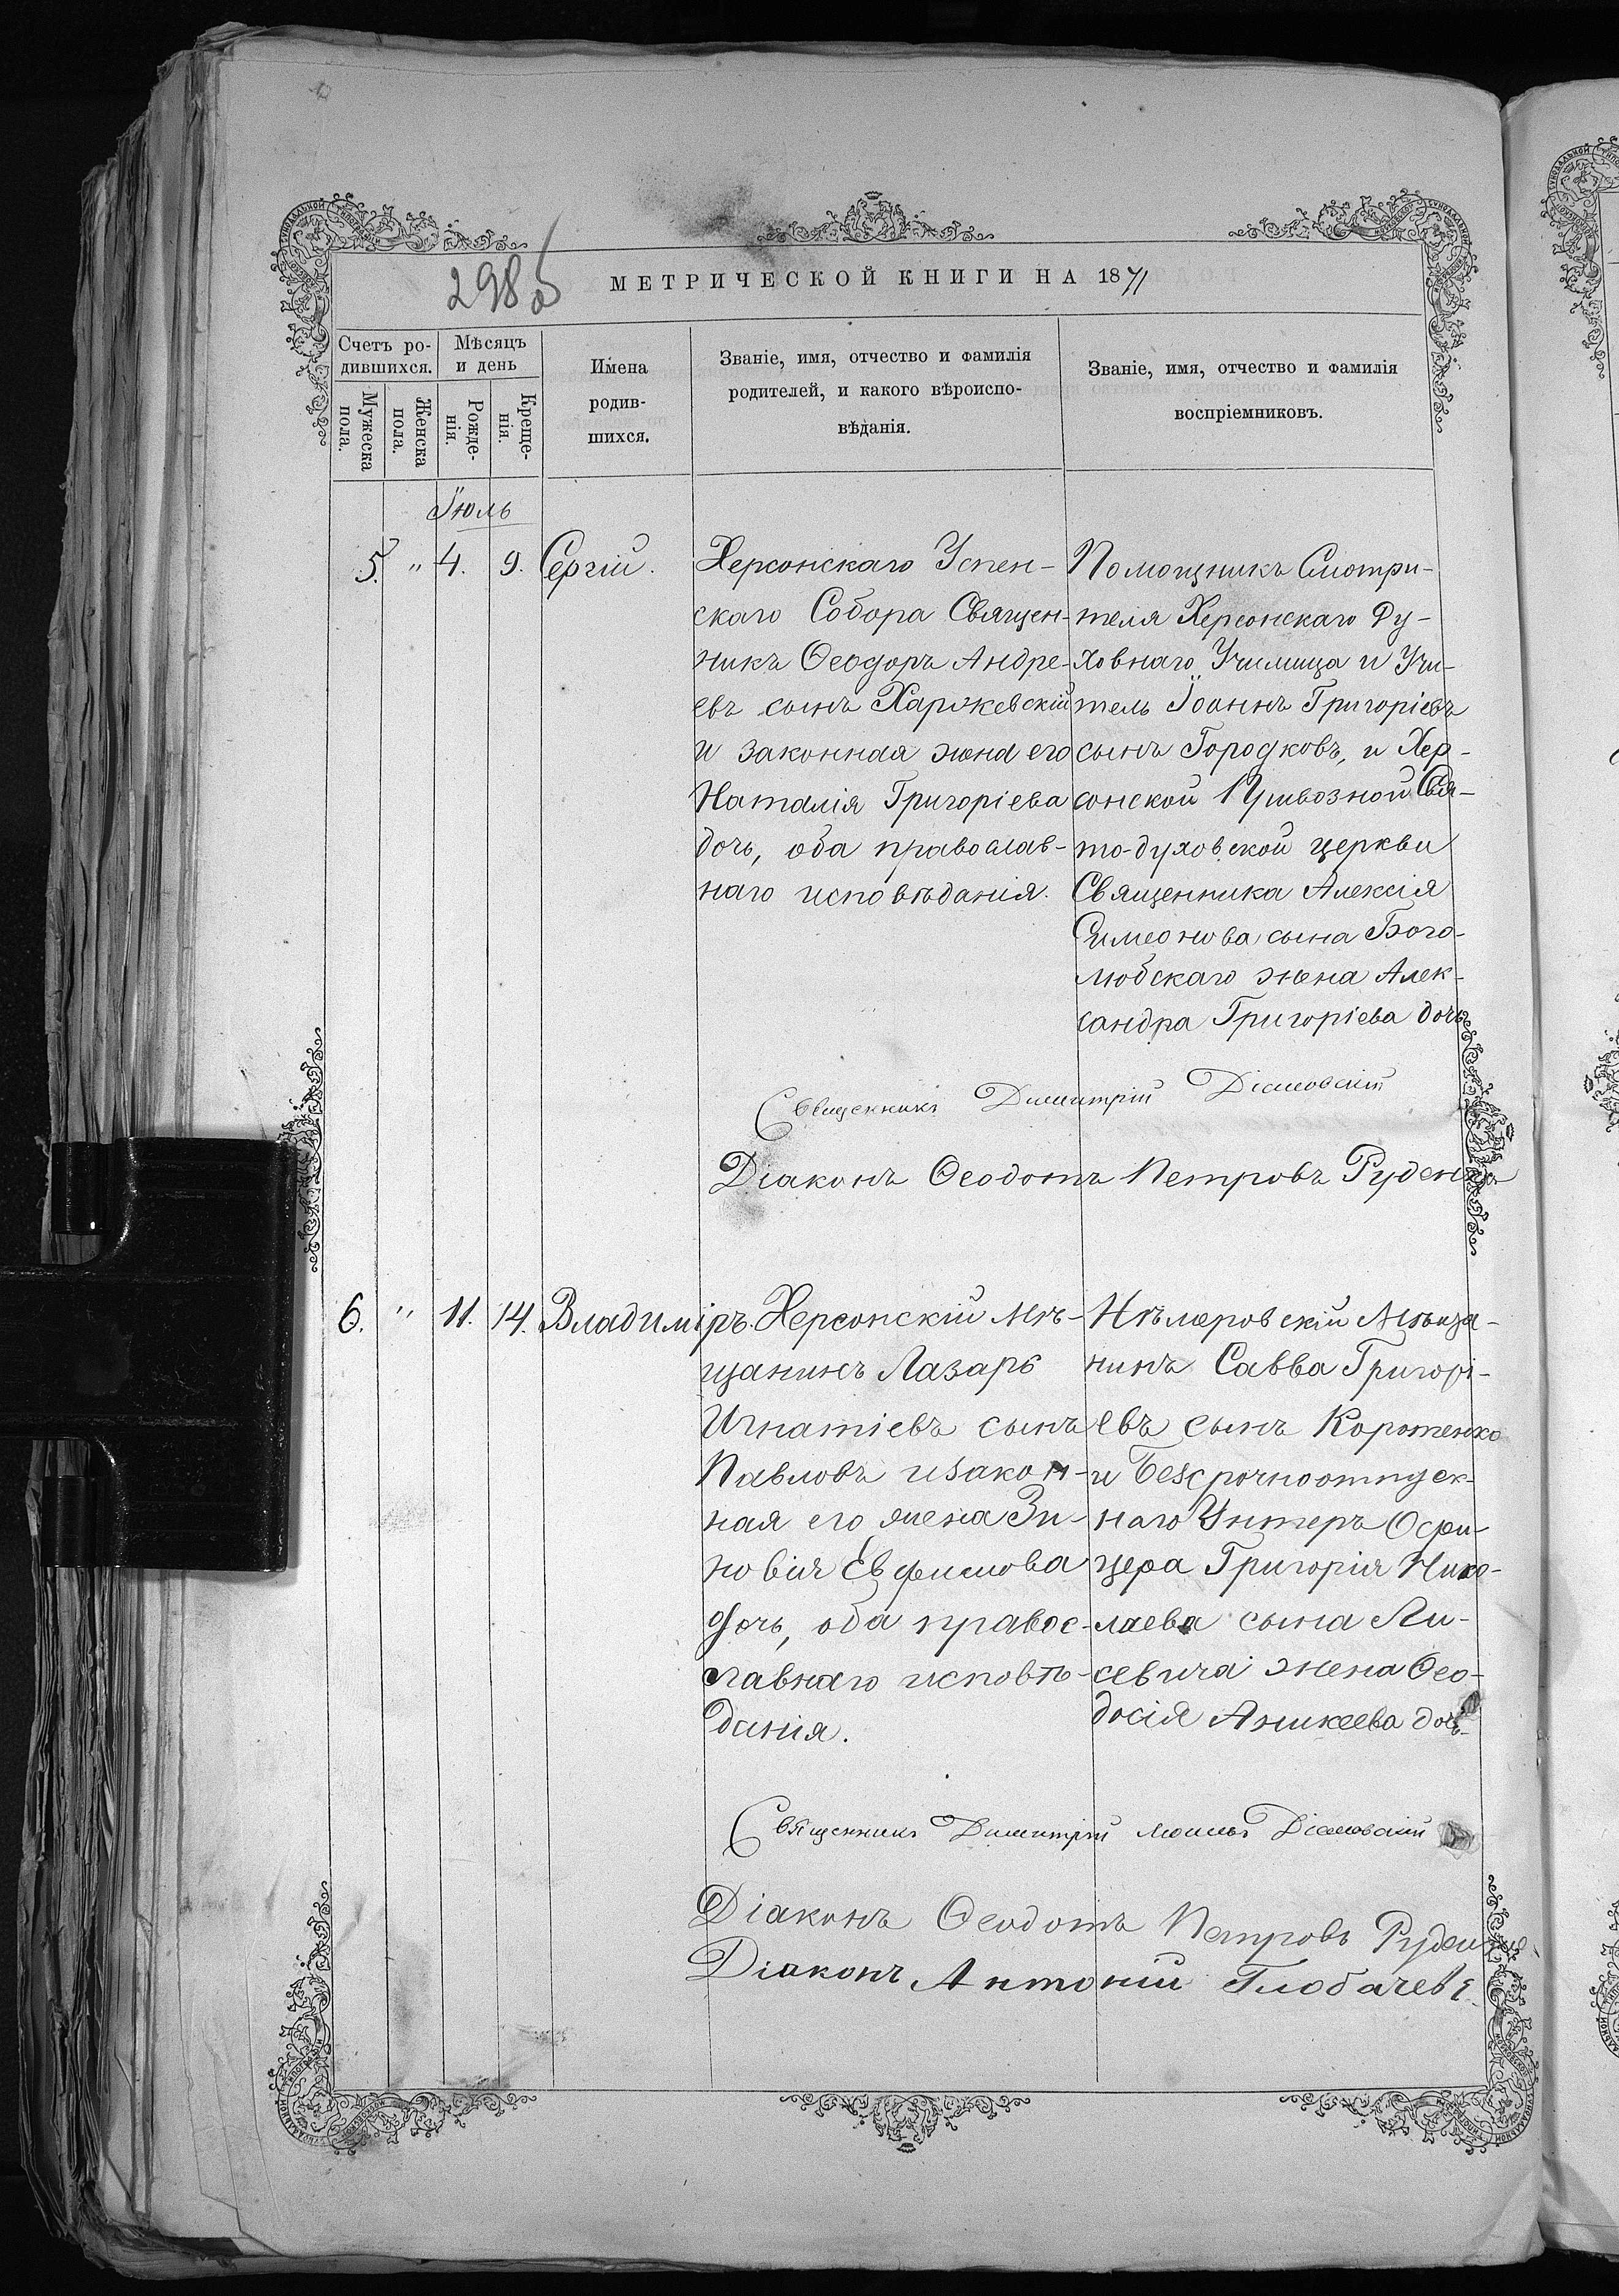 298 об
МЕТРИЧЕСКОЙ КНИГИ НА 1871
Счетъ ро-
дившихся.
Мужеска
пола.
Женска
пола.
Мѣсяцъ
и день
Рожде-
нія.
Креще-
нія.
Имена
родив-
шихся.
Званіе, имя, отчество и фамилія
родителей, и какого вѣроиспо-
вѣданія.
Званіе, имя, отчество и фамилія
воспріемниковъ.
Іюль
5. " 4. 9. Сергій.
Херсонскаго Успен-
скаго Собора Священ-
никъ Ѳеодоръ Андре-
евъ сынъ Харжевскій
и законная жена его
Наталія Григоріева
дочь, оба православ-
наго исповѣданія.
Помощникъ Смотри-
теля Херсонскаго Ду-
ховнаго Училища и Учи-
тель Іоаннъ Григоріевъ
сынъ Городковъ, и Хер-
сонской Привозной Свя-
то-духовской церкви
Священника Алексія
Симеонова сына Бого-
любскаго жена Алек-
сандра Григоріева дочь
Священникъ Димитрій
Діаконъ Ѳеодотъ Петровъ Руденко
6. " 11. 14. Владиміръ.
Херсонскій мѣ-
щанинъ Лазарь
Игнатіевъ сынъ
Павловъ и закон-
ная его жена Зи-
новія Евфимова
дочь, оба правос-
лавнаго исповѣ-
данія.
Нѣмеровскій мѣща-
нинъ Савва Григорі-
евъ сынъ Коротенко
и Безсрочноотпуск-
наго Унтеръ Офи-
цера Григорія Нико-
лаева сына Ли-
севича жена Ѳео-
досія Аникеева дочь
Священникъ Димитрій
Діаконъ Ѳеодотъ Петровъ Руденко
Діаконъ Антоній Глобачевъ